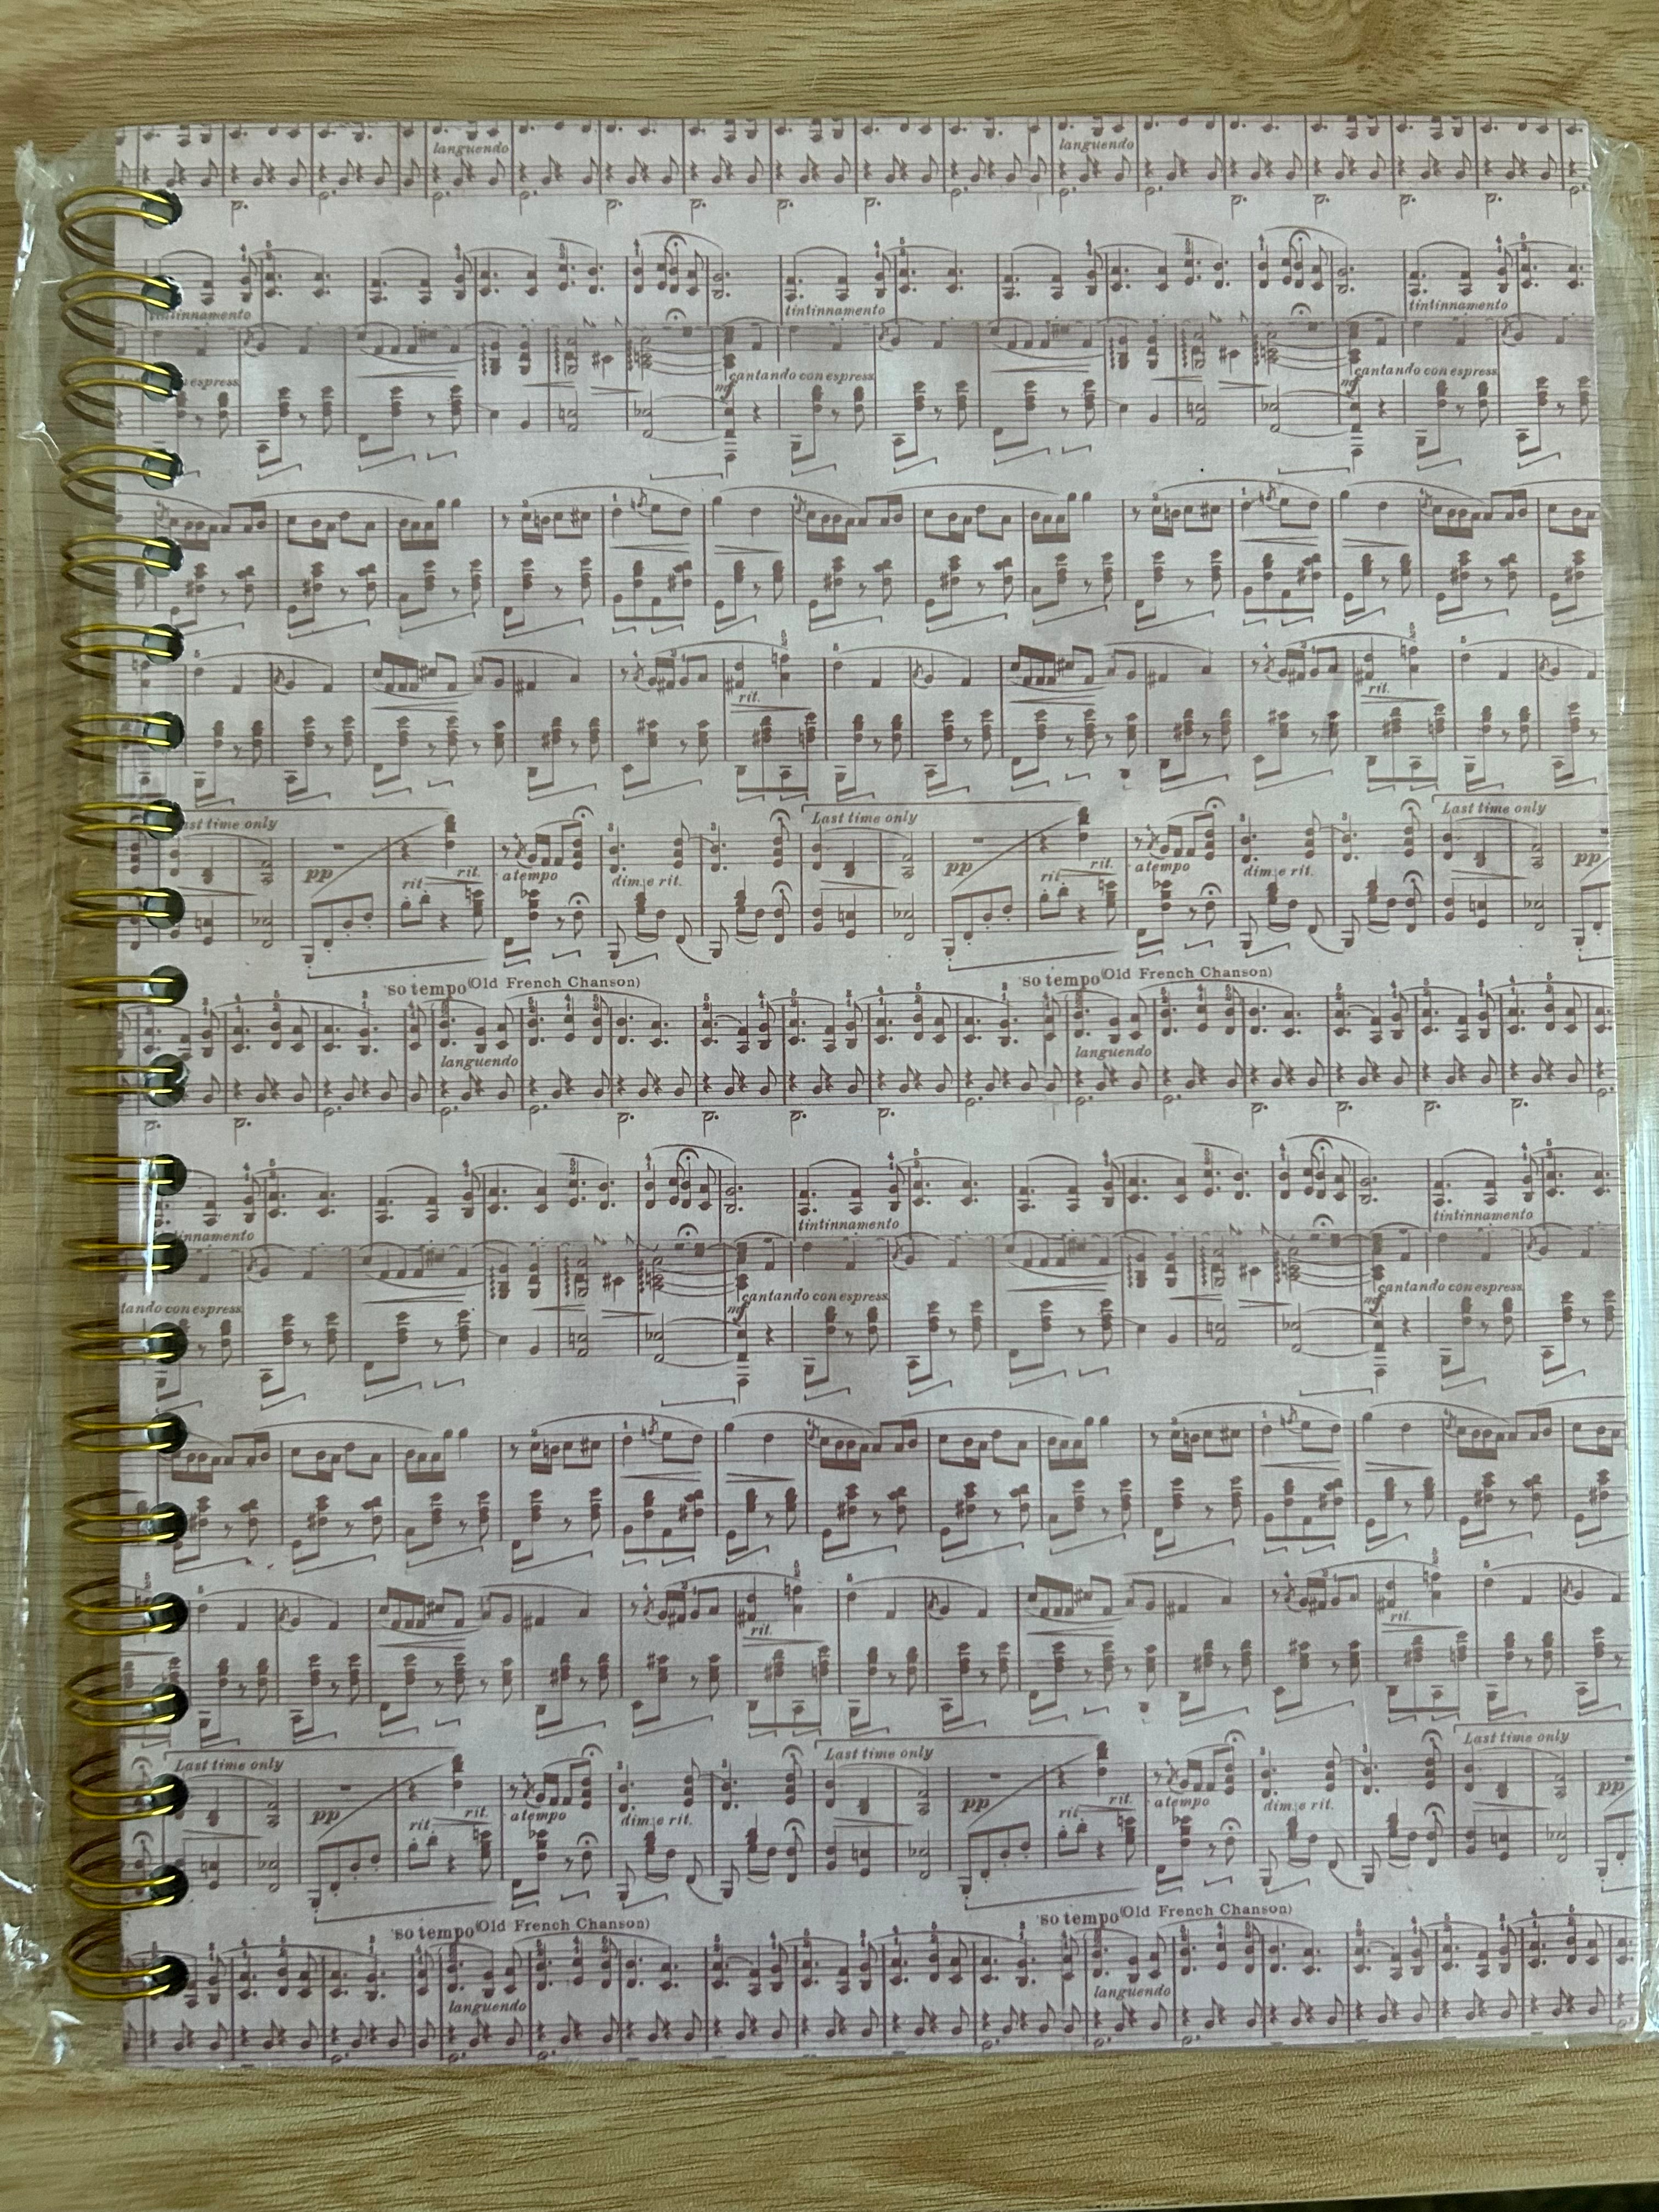 languendo languendo
tintinnamento tintinnamento tintinnamento
espress. mf cantando con espress. mf cantando con espress.
rit. rit.
Last time only Last time only Last time only
pp rit. rit. a tempo dim. e rit. pp rit. rit. a tempo dim. e rit. pp
so tempo (Old French Chanson) so tempo (Old French Chanson)
languendo languendo
tinnamento tintinnamento tintinnamento
tando con espress. mf cantando con espress. mf cantando con espress.
rit. rit.
Last time only Last time only Last time only
pp rit. rit. a tempo dim. e rit. pp rit. rit. a tempo dim. e rit. pp
so tempo (Old French Chanson) so tempo (Old French Chanson)
languendo languendo